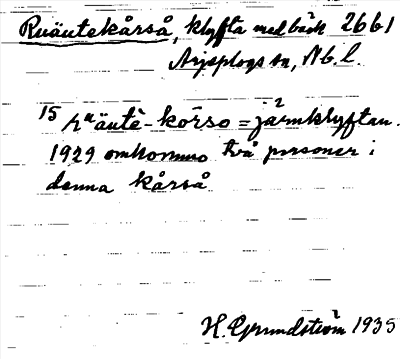 Ruäutekårså, klyfta med bäck 2661
Arjeplogs sn, Nb.l.
15 ruäutē-kōrso = järnklyftan.
1929 omkommo två personer i
denna kårså
H. Grundström 1935